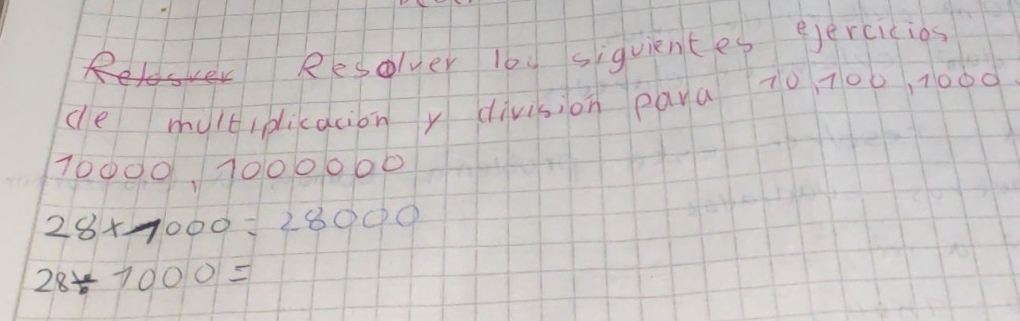 Relosver Resolver los siguientes ejercicios
de multiplicación y división para 10,100,1000.
10000, 1000000
28×1000= 28000
28÷1000=